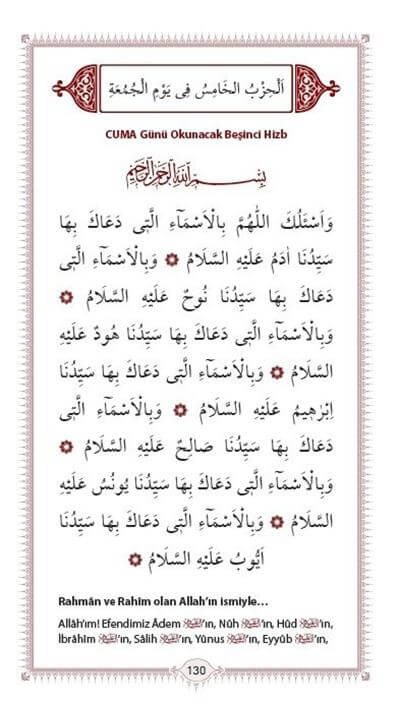 اَلْحِزْبُ الْخَامِسُ فِى يَوْمِ الْجُمُعَةِ
CUMA Günü Okunacak Beşinci Hizb
بِسْمِ اللهِ الرَّحْمٰنِ الرَّحِيمِ
وَاَسْئَلُكَ اللّٰهُمَّ بِالْاَسْمَٓاءِ الَّتِى دَعَاكَ بِهَا
سَيِّدُنَا اٰدَمُ عَلَيْهِ السَّلَامُ ۞ وَبِالْاَسْمَٓاءِ الَّتِى
دَعَاكَ بِهَا سَيِّدُنَا نُوحٌ عَلَيْهِ السَّلَامُ ۞
وَبِالْاَسْمَٓاءِ الَّتِى دَعَاكَ بِهَا سَيِّدُنَا هُودٌ عَلَيْهِ
السَّلَامُ ۞ وَبِالْاَسْمَٓاءِ الَّتِى دَعَاكَ بِهَا سَيِّدُنَا
اِبْرٰهِيمُ عَلَيْهِ السَّلَامُ ۞ وَبِالْاَسْمَٓاءِ الَّتِى
دَعَاكَ بِهَا سَيِّدُنَا صَالِحٌ عَلَيْهِ السَّلَامُ ۞
وَبِالْاَسْمَٓاءِ الَّتِى دَعَاكَ بِهَا سَيِّدُنَا يُونُسُ عَلَيْهِ
السَّلَامُ ۞ وَبِالْاَسْمَٓاءِ الَّتِى دَعَاكَ بِهَا سَيِّدُنَا
اَيُّوبُ عَلَيْهِ السَّلَامُ ۞
Rahmân ve Rahîm olan Allah’ın ismiyle…
Allâh’ım! Efendimiz Âdem ’ın, Nûh ’ın, Hûd ’ın,
İbrâhîm ’ın, Sâlih ’ın, Yûnus ’ın, Eyyûb ’ın,
130